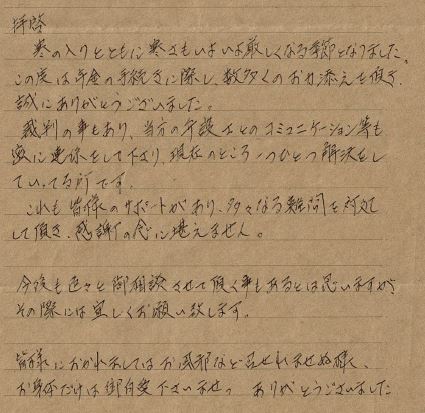 拝啓
寒の入りとともに寒さもいよいよ厳しくなる季節となりました。
この度は年金の手続きに際し、数多くのお力添えを頂き、
誠にありがとうございました。
裁判の事もあり、当方の弁護士とのコミュニケーション等も
密に連係をして下さり、現在のところ一つひとつ解決をし
ていってる所です。
これも皆様のサポートがあり、多々なる難問を対処
して頂き、感謝の念に堪えません。
今後も色々と御相談させて頂く事もあるとは思いますが、
その際には宜しくお願い致します。
皆様におかれましてはお風邪など召せれませぬ様、
お身体だけは御自愛下さいませ。 ありがとうございました